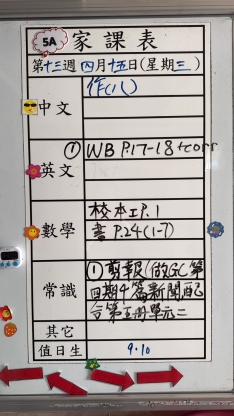 5A 家課表
第十三週 四月十五日(星期三)
中文 作(八)
英文 ① WB P.17-18 + corr
數學 校本工P.1
書 P.24(1-7)
常識 ① 剪報(做GC 第
四期4篇新聞配
合第五冊單元二
其它
值日生 9.10